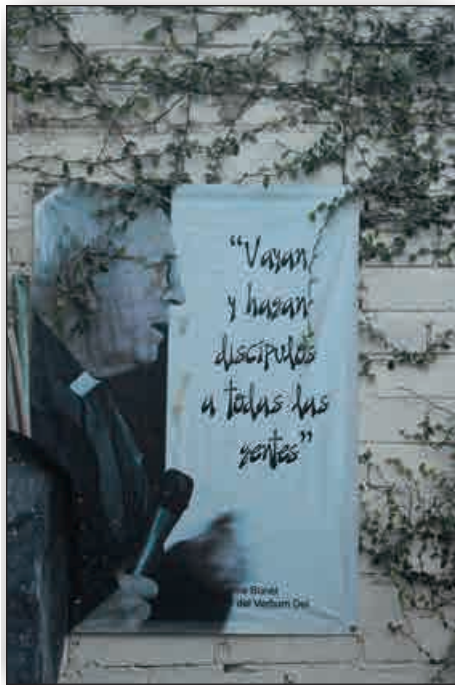 “Vayan
y hagan
discípulos
a todas las
gentes”
del Verbum Dei